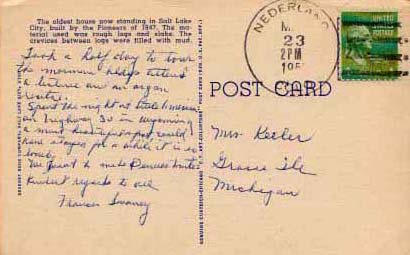 The oldest house now standing in Salt Lake
City, built by the Pioneers of 1847. The ma-
terial used was rough logs and slabs. The
crevices between logs were filled with mud.
Took a half day to tour
the mormon bldgs attend
a lecture and an organ
recital.
Spent the night at Little America
on highway 30 in Wyoming
a most beautiful spot could
have stayed for a while it is so
lovely.
We want to make Denver tonite
Kindest regards to all
Frances
NEDERLAND
23
2 PM
195
UNITED STATES
POSTAGE
POST CARD
Mrs Keeler
Grosse Ile
Michigan
GENUINE CURTEICH-CHICAGO "C.T. ART-COLORTONE" POST CARD (REG. U.S. PAT. OFF.)